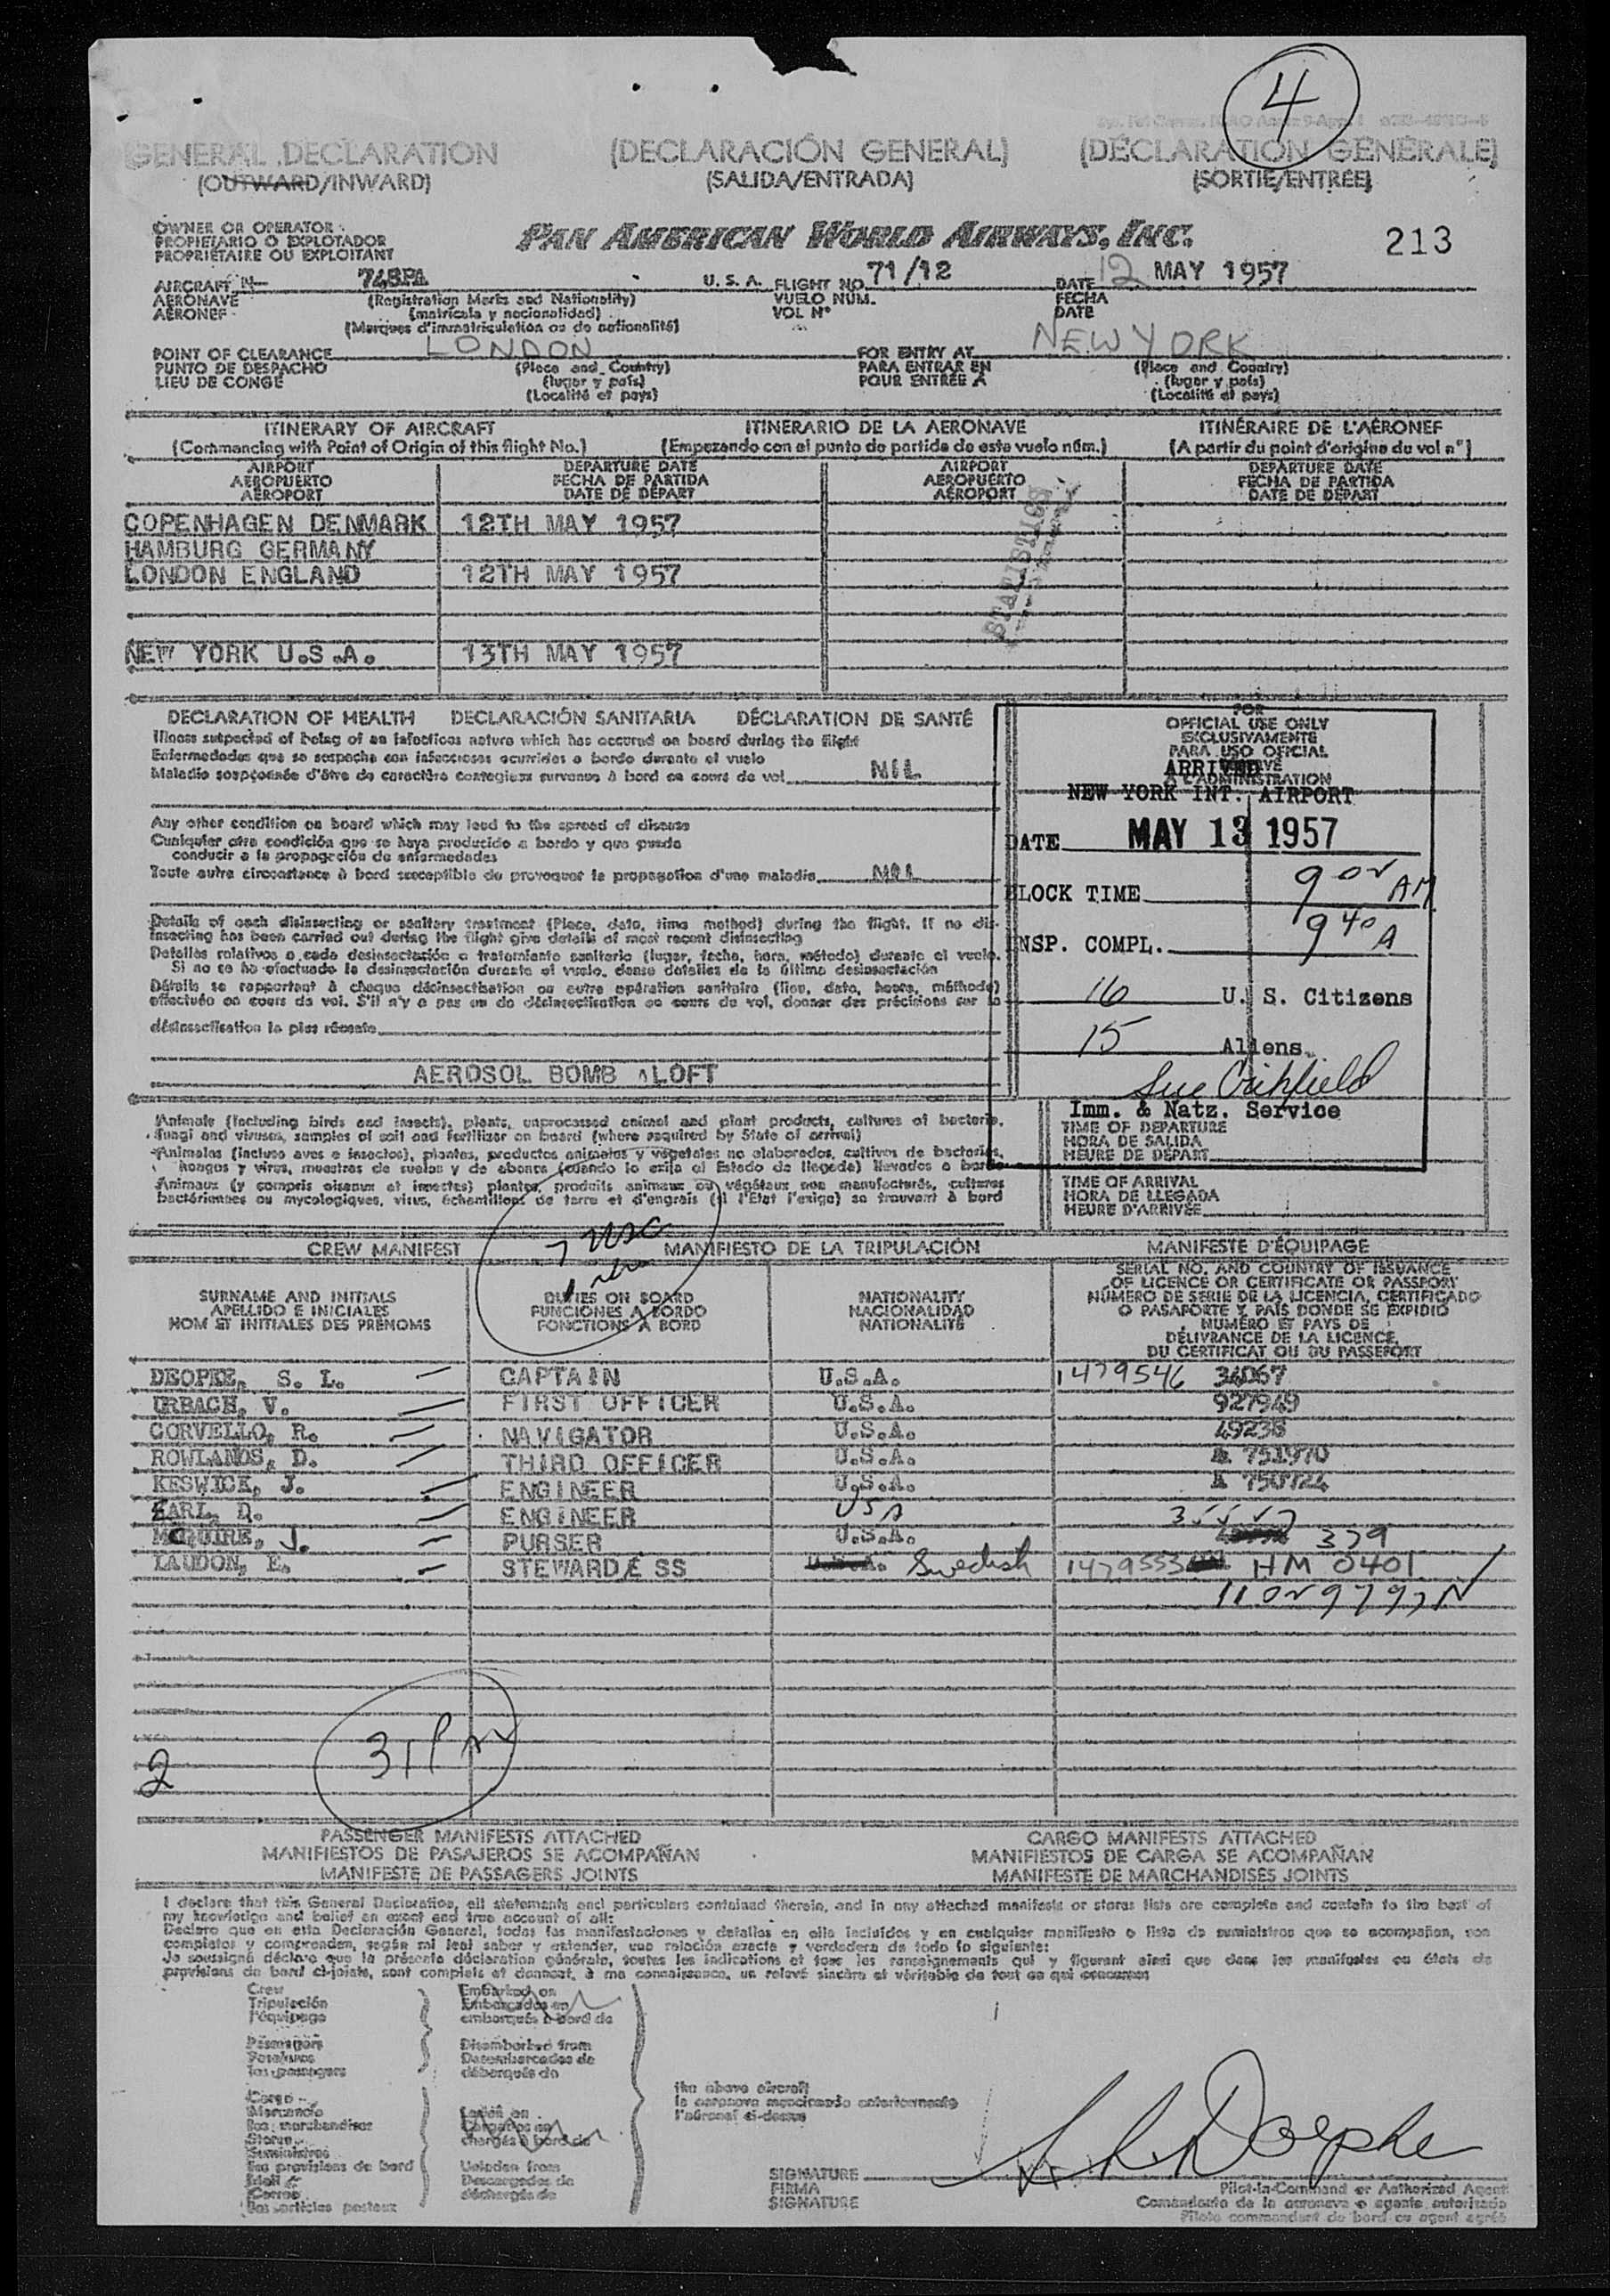 4
GENERAL DECLARATION (DECLARACIÓN GENERAL) (DÉCLARATION GÉNÉRALE)
(OUTWARD/INWARD) (SALIDA/ENTRADA) (SORTIE/ENTRÉE)
OWNER OR OPERATOR
PROPIETARIO O EXPLOTADOR
PROPRIÉTAIRE OU EXPLOITANT
PAN AMERICAN WORLD AIRWAYS, INC. 213
AIRCRAFT N- 748PA U.S.A. FLIGHT NO. 71/12 DATE 12 MAY 1957
AERONAVE (Registration Marks and Nationality) VUELO NÚM. FECHA
AÉRONEF (matrícula y nacionalidad) VOL Nº DATE
(Marques d'immatriculation ou de nationalité)
POINT OF CLEARANCE LONDON FOR ENTRY AT NEW YORK
PUNTO DE DESPACHO (Place and Country) PARA ENTRAR EN (Place and Country)
LIEU DE CONGÉ (lugar y país) POUR ENTRÉE À (lugar y país)
(Localité et pays) (Localité et pays)
ITINERARY OF AIRCRAFT ITINERARIO DE LA AERONAVE ITINÉRAIRE DE L'AÉRONEF
(Commencing with Point of Origin of this flight No.) (Empezando con el punto de partida de este vuelo núm.) (A partir du point d'origine du vol nº)
AIRPORT DEPARTURE DATE AIRPORT DEPARTURE DATE
AEROPUERTO FECHA DE PARTIDA AEROPUERTO FECHA DE PARTIDA
AÉROPORT DATE DE DÉPART AÉROPORT DATE DE DÉPART
COPENHAGEN DENMARK 12TH MAY 1957
HAMBURG GERMANY
LONDON ENGLAND 12TH MAY 1957
STATISTICS
NEW YORK U.S.A. 13TH MAY 1957
DECLARATION OF HEALTH DECLARACIÓN SANITARIA DÉCLARATION DE SANTÉ
Illness suspected of being of an infectious nature which has occured on board during the flight
Enfermedades que se sospecha son infecciosas ocurridas a bordo durante el vuelo
Maladie soupçonnée d'être de caractère contagieux survenue à bord en cours de vol NIL
Any other condition on board which may lead to the spread of disease
Cualquier otra condición que se haya producido a bordo y que pueda
conducir a la propagación de enfermedades
Toute autre circonstance à bord susceptible de provoquer la propagation d'une maladie NIL
Details of each disinsecting or sanitary treatment (Place, date, time method) during the flight. If no dis-
insecting has been carried out during the flight give details of most recent disinsecting
Detalles relativos a cada desinsectación o tratamiento sanitario (lugar, fecha, hora, método) durante el vuelo.
Si no se ha efectuado la desinsectación durante el vuelo, dense detalles de la última desinsectación
Détails se rapportant à chaque désinsectisation ou autre opération sanitaire (lieu, date, heure, méthode)
effectuée en cours de vol. S'il n'y a pas eu de désinsectisation en cours de vol, donner des précisions sur la
désinsectisation la plus récente
AEROSOL BOMB ALOFT
FOR
OFFICIAL USE ONLY
EXCLUSIVAMENTE
PARA USO OFICIAL
ARRIVED
À L'ADMINISTRATION
NEW YORK INT. AIRPORT
DATE MAY 13 1957
BLOCK TIME 9 AM
INSP. COMPL. 9 40 A
16 U. S. Citizens
15 Aliens
Sue Crihfield
Imm. & Natz. Service
TIME OF DEPARTURE
HORA DE SALIDA
HEURE DE DÉPART
TIME OF ARRIVAL
HORA DE LLEGADA
HEURE D'ARRIVÉE
Animals (including birds and insects), plants, unprocessed animal and plant products, cultures of bacteria,
fungi and viruses, samples of soil and fertilizer on board (where required by State of arrival)
Animales (incluso aves e insectos), plantas, productos animales y vegetales no elaborados, cultivos de bacterias,
hongos y virus, muestras de suelos y de abonos (cuando lo exija el Estado de llegada) llevados a bordo
Animaux (y compris oiseaux et insectes) plantes, produits animaux ou végétaux non manufacturés, cultures
bactériennes ou mycologiques, virus, échantillons de terre et d'engrais (si l'Etat l'exige) se trouvant à bord
7 USC
1
CREW MANIFEST MANIFIESTO DE LA TRIPULACIÓN MANIFESTE D'ÉQUIPAGE
SURNAME AND INITIALS DUTIES ON BOARD NATIONALITY SERIAL NO. AND COUNTRY OF ISSUANCE
APELLIDO E INICIALES FUNCIONES A BORDO NACIONALIDAD OF LICENCE OR CERTIFICATE OR PASSPORT
NOM ET INITIALES DES PRÉNOMS FONCTIONS À BORD NATIONALITÉ NÚMERO DE SERIE DE LA LICENCIA, CERTIFICADO
O PASAPORTE Y PAÍS DONDE SE EXPIDIÓ
NUMÉRO ET PAYS DE
DÉLIVRANCE DE LA LICENCE,
DU CERTIFICAT OU DU PASSEPORT
DEOPKE, S. L. CAPTAIN U.S.A. 1479546 34067
URBACH, V. FIRST OFFICER U.S.A. 927949
CORVELLO, R. NAVIGATOR U.S.A. 49238
ROWLANDS, D. THIRD OFFICER U.S.A. A 751970
KESWICK, J. ENGINEER U.S.A. A 750724
EARL, D. ENGINEER USA
MCQUIRE, J. PURSER U.S.A. 379
LAUDON, E. STEWARDESS U.S.A. Swedish 1479553 HM 0401
2
31
PASSENGER MANIFESTS ATTACHED CARGO MANIFESTS ATTACHED
MANIFIESTOS DE PASAJEROS SE ACOMPAÑAN MANIFIESTOS DE CARGA SE ACOMPAÑAN
MANIFESTE DE PASSAGERS JOINTS MANIFESTE DE MARCHANDISES JOINTS
I declare that this General Declaration, all statements and particulars contained therein, and in any attached manifests or stores lists are complete and contain to the best of
my knowledge and belief an exact and true account of all:
Declaro que en esta Declaración General, todas las manifestaciones y detalles en ella incluidos y en cualquier manifiesto o lista de suministros que se acompañan, son
completos y comprenden, según mi leal saber y entender, una relación exacta y verdadera de todo lo siguiente:
Je soussigné déclare que la présente déclaration générale, toutes les indications et tous les renseignements qui y figurent ainsi que dans les manifestes ou états de
provisions de bord ci-joints, sont complets et donnent, à ma connaissance, un relevé sincère et véritable de tout ce qui concerne:
Crew Embarked on
Tripulación Embarcados en
l'équipage embarqués à bord de
Passengers Disembarked from
Pasajeros Desembarcados de
les passagers débarqués de
the above aircraft
la aeronave mencionada anteriormente
l'aéronef ci-dessus
Cargo
Mercancía Laden on
les marchandises Cargados en
Stores chargés à bord de
Suministros
les provisions de bord Unladen from
Mail Descargados de
Correo déchargés de
les articles postaux
SIGNATURE S L Doepke
FIRMA Pilot-in-Command or Authorized Agent
SIGNATURE Comandante de la aeronave o agente autorizado
Pilote commandant de bord ou agent agréé